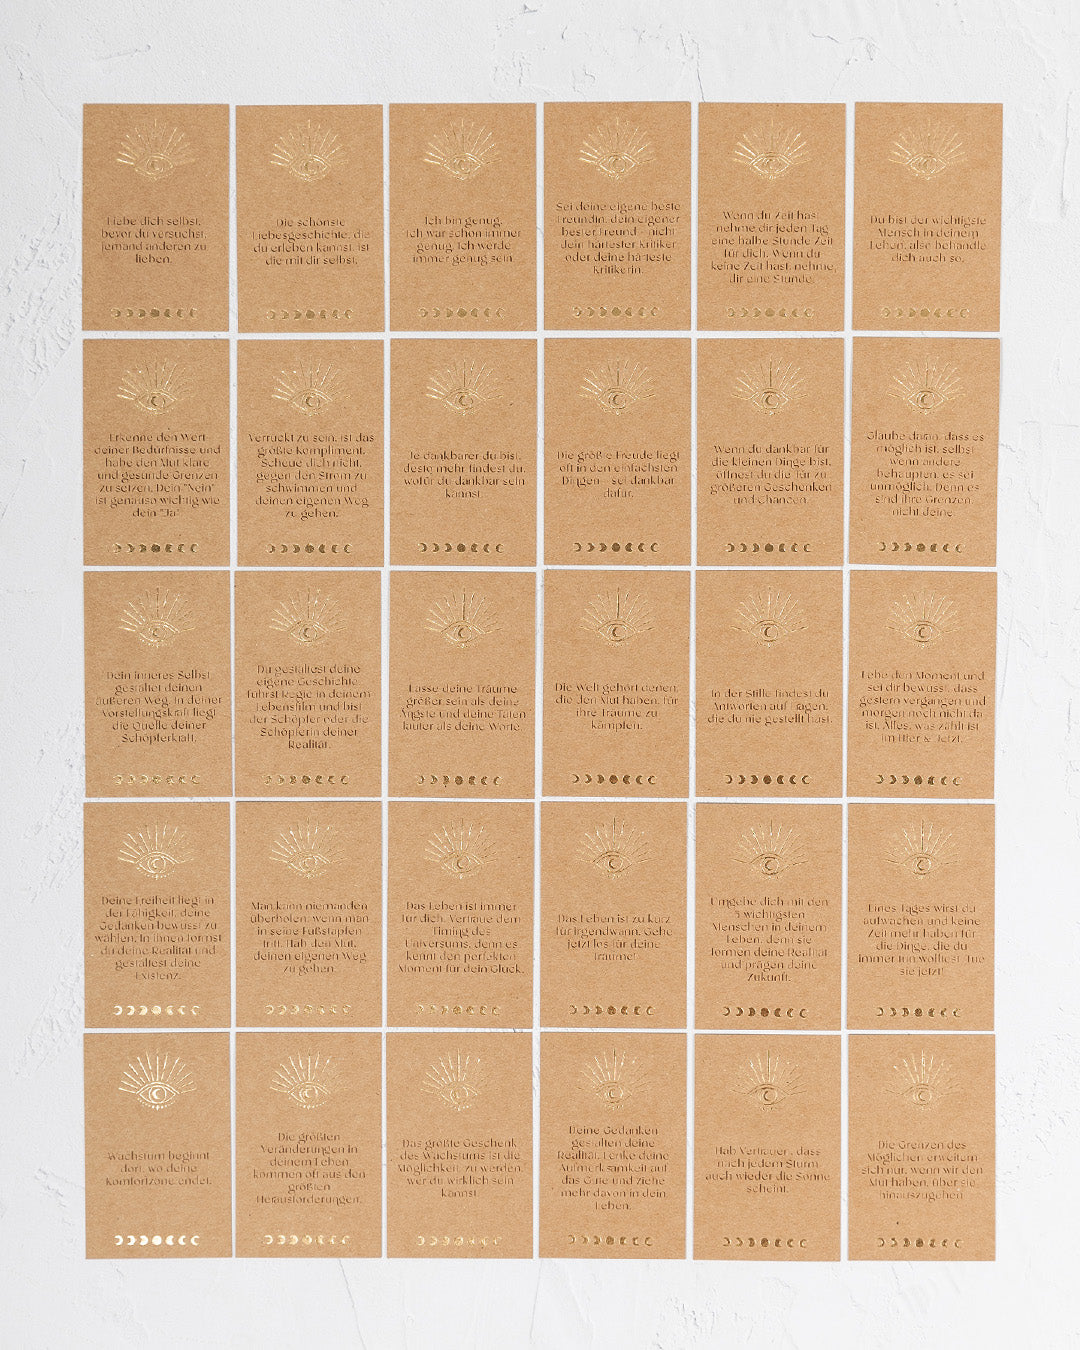 Liebe dich selbst,
bevor du versuchst,
jemand anderen zu
lieben.
Die schönste
Liebesgeschichte, die
du erleben kannst, ist
die mit dir selbst.
Ich bin genug.
Ich war schon immer
genug. Ich werde
immer genug sein.
Sei deine eigene beste
Freundin, dein eigener
bester Freund - nicht
dein härtester Kritiker
oder deine härteste
Kritikerin.
Wenn du Zeit hast,
nehme dir jeden Tag
eine halbe Stunde Zeit
für dich. Wenn du
keine Zeit hast, nehme
dir eine Stunde.
Du bist der wichtigste
Mensch in deinem
Leben, also behandle
dich auch so.
Erkenne den Wert
deiner Bedürfnisse und
habe den Mut klare
und gesunde Grenzen
zu setzen. Dein "Nein"
ist genauso wichtig wie
dein "Ja".
Verrückt zu sein, ist das
größte Kompliment.
Scheue dich nicht,
gegen den Strom zu
schwimmen und
deinen eigenen Weg
zu gehen.
Je dankbarer du bist,
desto mehr findest du,
wofür du dankbar sein
kannst.
Die größte Freude liegt
oft in den einfachsten
Dingen - sei dankbar
dafür.
Wenn du dankbar für
die kleinen Dinge bist,
öffnest du die Tür zu
größeren Geschenken
und Chancen.
Glaube daran, dass es
möglich ist, selbst
wenn andere
behaupten, es sei
unmöglich. Denn es
sind ihre Grenzen,
nicht deine.
Dein inneres Selbst
gestaltet deinen
äußeren Weg. In deiner
Vorstellungskraft liegt
die Quelle deiner
Schöpferkraft.
Du gestaltest deine
eigene Geschichte,
führst Regie in deinem
Lebensfilm und bist
der Schöpfer oder die
Schöpferin deiner
Realität.
Lasse deine Träume
größer sein als deine
Ängste und deine Taten
lauter als deine Worte.
Die Welt gehört denen,
die den Mut haben, für
ihre Träume zu
kämpfen.
In der Stille findest du
Antworten auf Fragen,
die du nie gestellt hast.
Lebe den Moment und
sei dir bewusst, dass
gestern vergangen und
morgen noch nicht da
ist. Alles, was zählt ist
im Hier & Jetzt.
Deine Freiheit liegt in
der Fähigkeit, deine
Gedanken bewusst zu
wählen. In ihnen formst
du deine Realität und
gestaltest deine
Existenz.
Man kann niemanden
überholen, wenn man
in seine Fußstapfen
tritt. Hab den Mut,
deinen eigenen Weg
zu gehen.
Das Leben ist immer
für dich. Vertraue dem
Timing des
Universums, denn es
kennt den perfekten
Moment für dein Glück.
Das Leben ist zu kurz
für irgendwann. Gehe
jetzt los für deine
Träume!
Umgebe dich mit den
5 wichtigsten
Menschen in deinem
Leben, denn sie
formen deine Realität
und prägen deine
Zukunft.
Eines Tages wirst du
aufwachen und keine
Zeit mehr haben für
die Dinge, die du
immer tun wolltest. Tue
sie jetzt!
Wachstum beginnt
dort, wo deine
Komfortzone endet.
Die größten
Veränderungen in
deinem Leben
kommen oft aus den
größten
Herausforderungen.
Das größte Geschenk
des Wachstums ist die
Möglichkeit, zu werden,
wer du wirklich sein
kannst.
Deine Gedanken
gestalten deine
Realität. Lenke deine
Aufmerksamkeit auf
das Gute und ziehe
mehr davon in dein
Leben.
Hab Vertrauen, dass
nach jedem Sturm
auch wieder die Sonne
scheint.
Die Grenzen des
Möglichen erweitern
sich nur, wenn wir den
Mut haben, über sie
hinauszugehen.